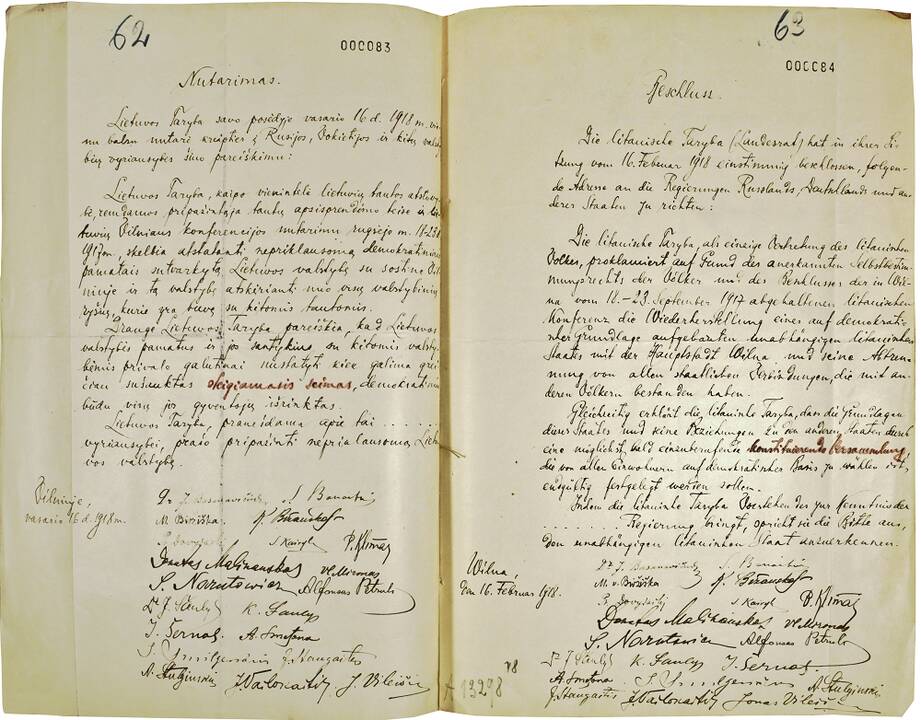 62
000083
Nutarimas.
Lietuvos Taryba savo posėdyje vasario 16 d. 1918 m. vie-
nu balsu nutarė kreiptis į Rusijos, Vokietijos ir kitų valsty-
bių vyriausybes šiuo pareiškimu:
Lietuvos Taryba, kaipo vienintelė lietuvių tautos atstovy-
bė, remdamos pripažintąja tautų apsisprendimo teise ir lie-
tuvių Vilniaus konferencijos nutarimu rugsėjo m. 18-23 d.
1917 m., skelbia atstatanti nepriklausomą demokratiniais
pamatais sutvarkytą Lietuvos valstybę su sostine Vil-
niuje ir tą valstybę atskirianti nuo visų valstybinių
ryšių, kurie yra buvę su kitomis tautomis.
Drauge Lietuvos Taryba pareiškia, kad Lietuvos
valstybės pamatus ir jos santykius su kitomis valsty-
bėmis privalo galutinai nustatyti kiek galima grei-
čiau sušauktas steigiamasis seimas, demokratiniu
būdu visų jos gyventojų išrinktas.
Lietuvos Taryba, pranešdama apie tai . . . . . .
vyriausybei, prašo pripažinti nepriklausomą Lietu-
vos valstybę.
Vilniuje,
vasario 16 d. 1918 m.
Dr. J. Basanavičius S. Banaitis
M. Biržiška. K. Bizauskas
P. Dovydaitis S. Kairys P. Klimas
Donatas Malinauskas Vl. Mironas
S. Narutowicz Alfonsas Petrulis
Dr. J. Šaulys K. Šaulys
J. Šernas. A. Smetona
J. Smilgevičius J. Staugaitis
A. Stulginskis J. Vailokaitis J. Vileišis
63
000084
Beschluss.
Die litauische Taryba (Landesrat) hat in ihrer Sit-
zung vom 16. Februar 1918 einstimmig beschlossen, folgen-
de Adresse an die Regierungen Russlands, Deutschlands und an-
derer Staaten zu richten:
Die litauische Taryba, als einzige Vertretung des litauischen
Volkes, proklamiert auf Grund des anerkannten Selbstbestim-
mungsrechts der Völker und des Beschlusses der in Wil-
na vom 18.-23. September 1917 abgehaltenen litauischen
Konferenz die Wiederherstellung eines auf demokrati-
scher Grundlage aufgebauten unabhängigen litauischen
Staates mit der Hauptstadt Wilna und seine Abtren-
nung von allen staatlichen Verbindungen, die mit an-
deren Völkern bestanden haben.
Gleichzeitig erklärt die litauische Taryba, dass die Grundlagen
dieses Staates und seine Beziehungen zu den anderen Staaten durch
eine möglichst bald einzuberufende konstituierende Versammlung,
die von allen Einwohnern auf demokratischer Basis zu wählen ist,
endgültig festgelegt werden sollen.
Indem die litauische Taryba Vorstehendes zur Kenntnis der
. . . . . . . . Regierung bringt, spricht sie die Bitte aus,
den unabhängigen litauischen Staat anzuerkennen.
Wilna,
den 16. Februar 1918.
Dr. J. Basanavičius S. Banaitis
M. v. Biržiška K. Bizauskas
P. Dovydaitis S. Kairys P. Klimas
Donatas Malinauskas Vl. Mironas
S. Narutowicz Alfonsas Petrulis
Dr. J. Šaulys K. Šaulys J. Šernas.
A. Smetona J. Smilgevičius A. Stulginskis
J. Staugaitis J. Vailokaitis Jonas Vileišis